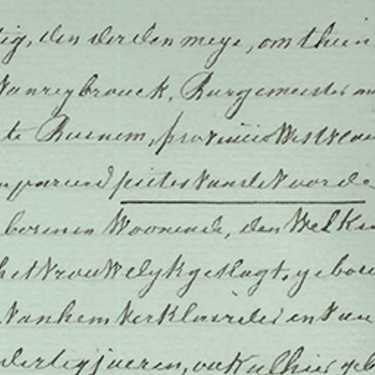 tig, den derden meye, om thien
Vanreybrouck, Burgemeester
te Beernem, provincie West
pieter Vande Voorde
Woonende, den Welken
het Vrouwelyk geslagt, gebo
Vanhem Verklaerde en Van
dertig jaeren, ook alhier geb